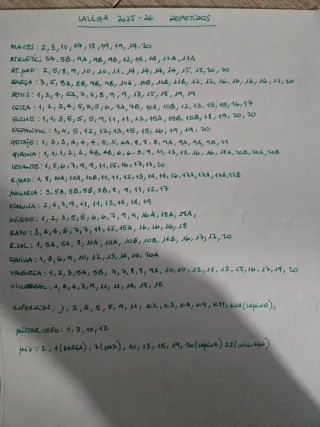 LALIGA 2025-26 REPETIDOS
ALAVES: 2, 3, 10, 14, 18, 19, 19, 19, 20
ATHLETIC: 3A, 5B, 9A, 9B, 9B, 12, 14, 14, 17A, 17A
AT. MAD: 2, 5, 8, 9, 10, 10, 11, 14, 14, 14, 14, 15, 17, 20, 20
BARÇA: 3, 5, 8A, 8B, 9B, 9B, 10A, 10B, 10B, 11B, 12, 12, 16, 16, 16, 16, 17, 20
BETIS: 1, 2, 4, 5A, 7, 7, 8, 9, 9, 13, 15, 18, 19, 19
CELTA: 1, 2, 2, 4, 5, 5, 5, 6, 7A, 7B, 10A, 10B, 12, 13, 15, 15, 16, 17
ELCHE: 1, 1, 3, 5, 5, 5, 9, 11, 11, 12, 15A, 15B, 15B, 18, 19, 20, 20
ESPANYOL: 1, 4, 5, 12, 12, 13, 15, 15, 16, 19, 19, 20
GETAFE: 1, 3, 3, 4, 4, 4, 5, 5, 6A, 8, 8, 8, 9A, 9A, 9A, 9B, 11
GIRONA: 1, 1, 1, 2, 2, 4B, 4B, 6, 6, 8, 9, 11, 13, 13, 16, 16, 18A, 20B, 20A, 20B
LEVANTE: 1, 5, 6, 7, 9, 9, 11, 15, 16, 17, 17, 20
R. MAD: 1, 8, 10A, 10A, 10B, 11, 11, 12, 13, 14, 14, 16, 17A, 17A, 17B, 17B
MALLORCA: 3, 5A, 5B, 5B, 8, 8, 9, 11, 12, 17
OSASUNA: 2, 4, 7, 9, 11, 11, 13, 14, 18, 19
OVIEDO: 1, 2, 3, 5, 5, 6, 6, 7, 9, 9, 16A, 18A, 18A,
RAYO: 3, 4, 4, 6, 7, 7, 11, 12, 15A, 16, 16, 16, 18
R. SOC: 1, 5A, 5A, 8, 10A, 10A, 10B, 10B, 14B, 16, 17, 17, 20
SEVILLA: 5, 6, 9, 10, 12, 13, 14, 14, 20A
VALENCIA: 1, 2, 3, 5A, 5B, 7, 7, 8, 8, 9A, 10, 10, 12, 13, 13, 15, 16, 17, 19, 20
VILLARREAL: 4, 4, 4, 7, 9, 11, 11, 14, 18, 18
MISTER CERO: 1, 8, 10, 12